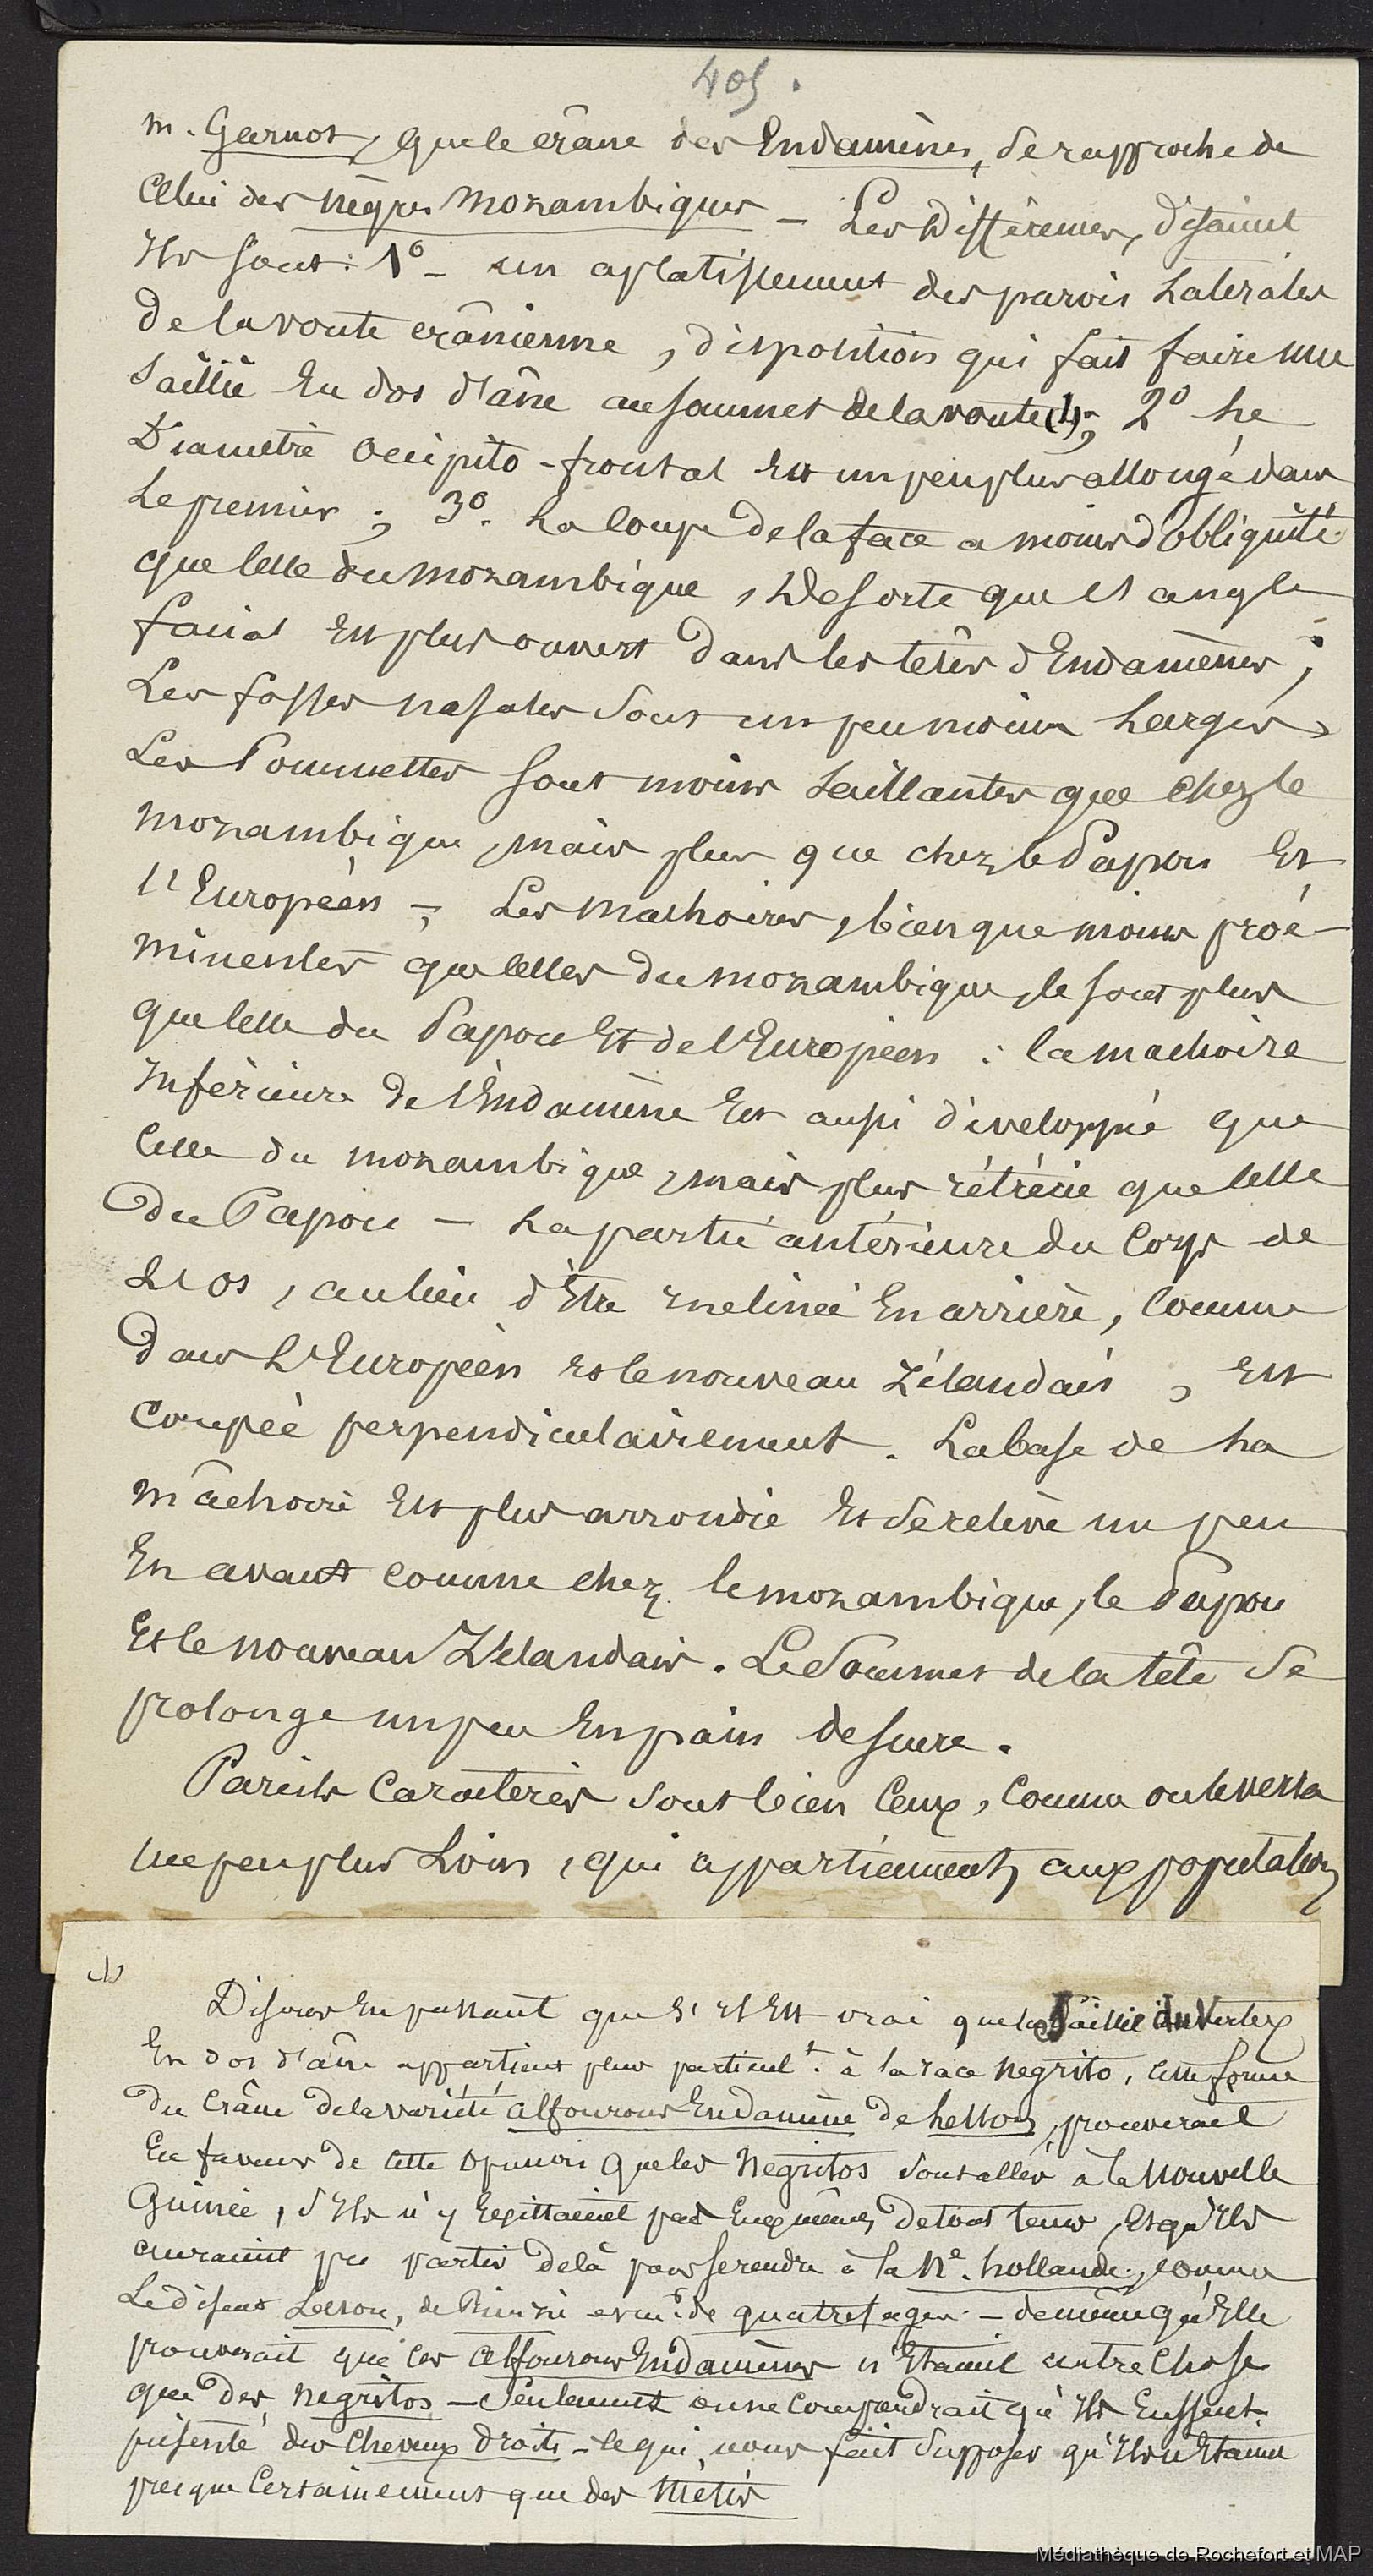 405.
m. Garnot, que le crâne des Endamènes, se rapproche de
Celui des nègres mozambiques — Les Différences, disaient
Ils sont : 1° — un aplatissement des parois Latérales
De la voute crânienne, disposition qui fait faire une
Saillie En dos d'âne au sommet de la voute (1); 2° Le
Diamètre occipito-frontal Est un peu plus allongé dans
Le premier ; 3°. La Coupe de la face a moins d'obliquité
que Celle du mozambique, De sorte que L'angle
facial Est plus ouvert dans les têtes d'Endamènes ;
Les fosses nasales sont un peu moins Larges,
Les Pommettes sont moins Saillantes que chez le
mozambique, mais plus que chez le Papou Et
L'Européen — Les machoires, bien que moins proé-
minentes que Celles du mozambique, le sont plus
que Celle du Papou Et de l'Européen : la machoire
Inférieure de l'Endamène Est aussi développée que
Celle du mozambique, mais plus rétrécie que Celle
Du Papou — La partie antérieure du Corps de
L'os, au lieu d'Être Inclinée En arrière, Comme
Dans L'Européen Et le nouveau Zélandais, Est
Coupée perpendiculairement. La base de La
mâchoire Est plus arrondie Et se relève un peu
En avant comme chez le mozambique, le Papou
Et le nouveau Zélandais. Le Sommet de la tête se
prolonge un peu En pain de sucre.
Pareils Caractères sont bien Ceux, Comme on le verra
un peu plus Loin, qui appartiennent aux population
(1)
Disons En passant que s'il Est vrai que la Saillie du Vertex
En dos d'âne appartient plus particult. à la race Negrito, Cette forme
du Crâne de la variété alfourous Endamène de Lesson, prouverait
En faveur de Cette Opinion que les Negritos sont allés à la Nouvelle
Guinée, s'Ils n'y Existaient pas Eux mêmes de tout tems, Et qu'Ils
auraient pu partir de là pour se rendre à la Nle. hollande, comme
Le disent Lesson, de Rienzi et mr. de quatrefages. — de même qu'Elle
prouverait que les Alfourous Endamènes n'Etaient autre Chose
que des Negritos — Seulement on ne Comprendrait qu'Ils Eussent
présenté des Cheveux droits — Ce qui nous fait Supposer qu'Ils n'Etaient
presque Certainement que des Métis
Médiathèque de Rochefort et MAP